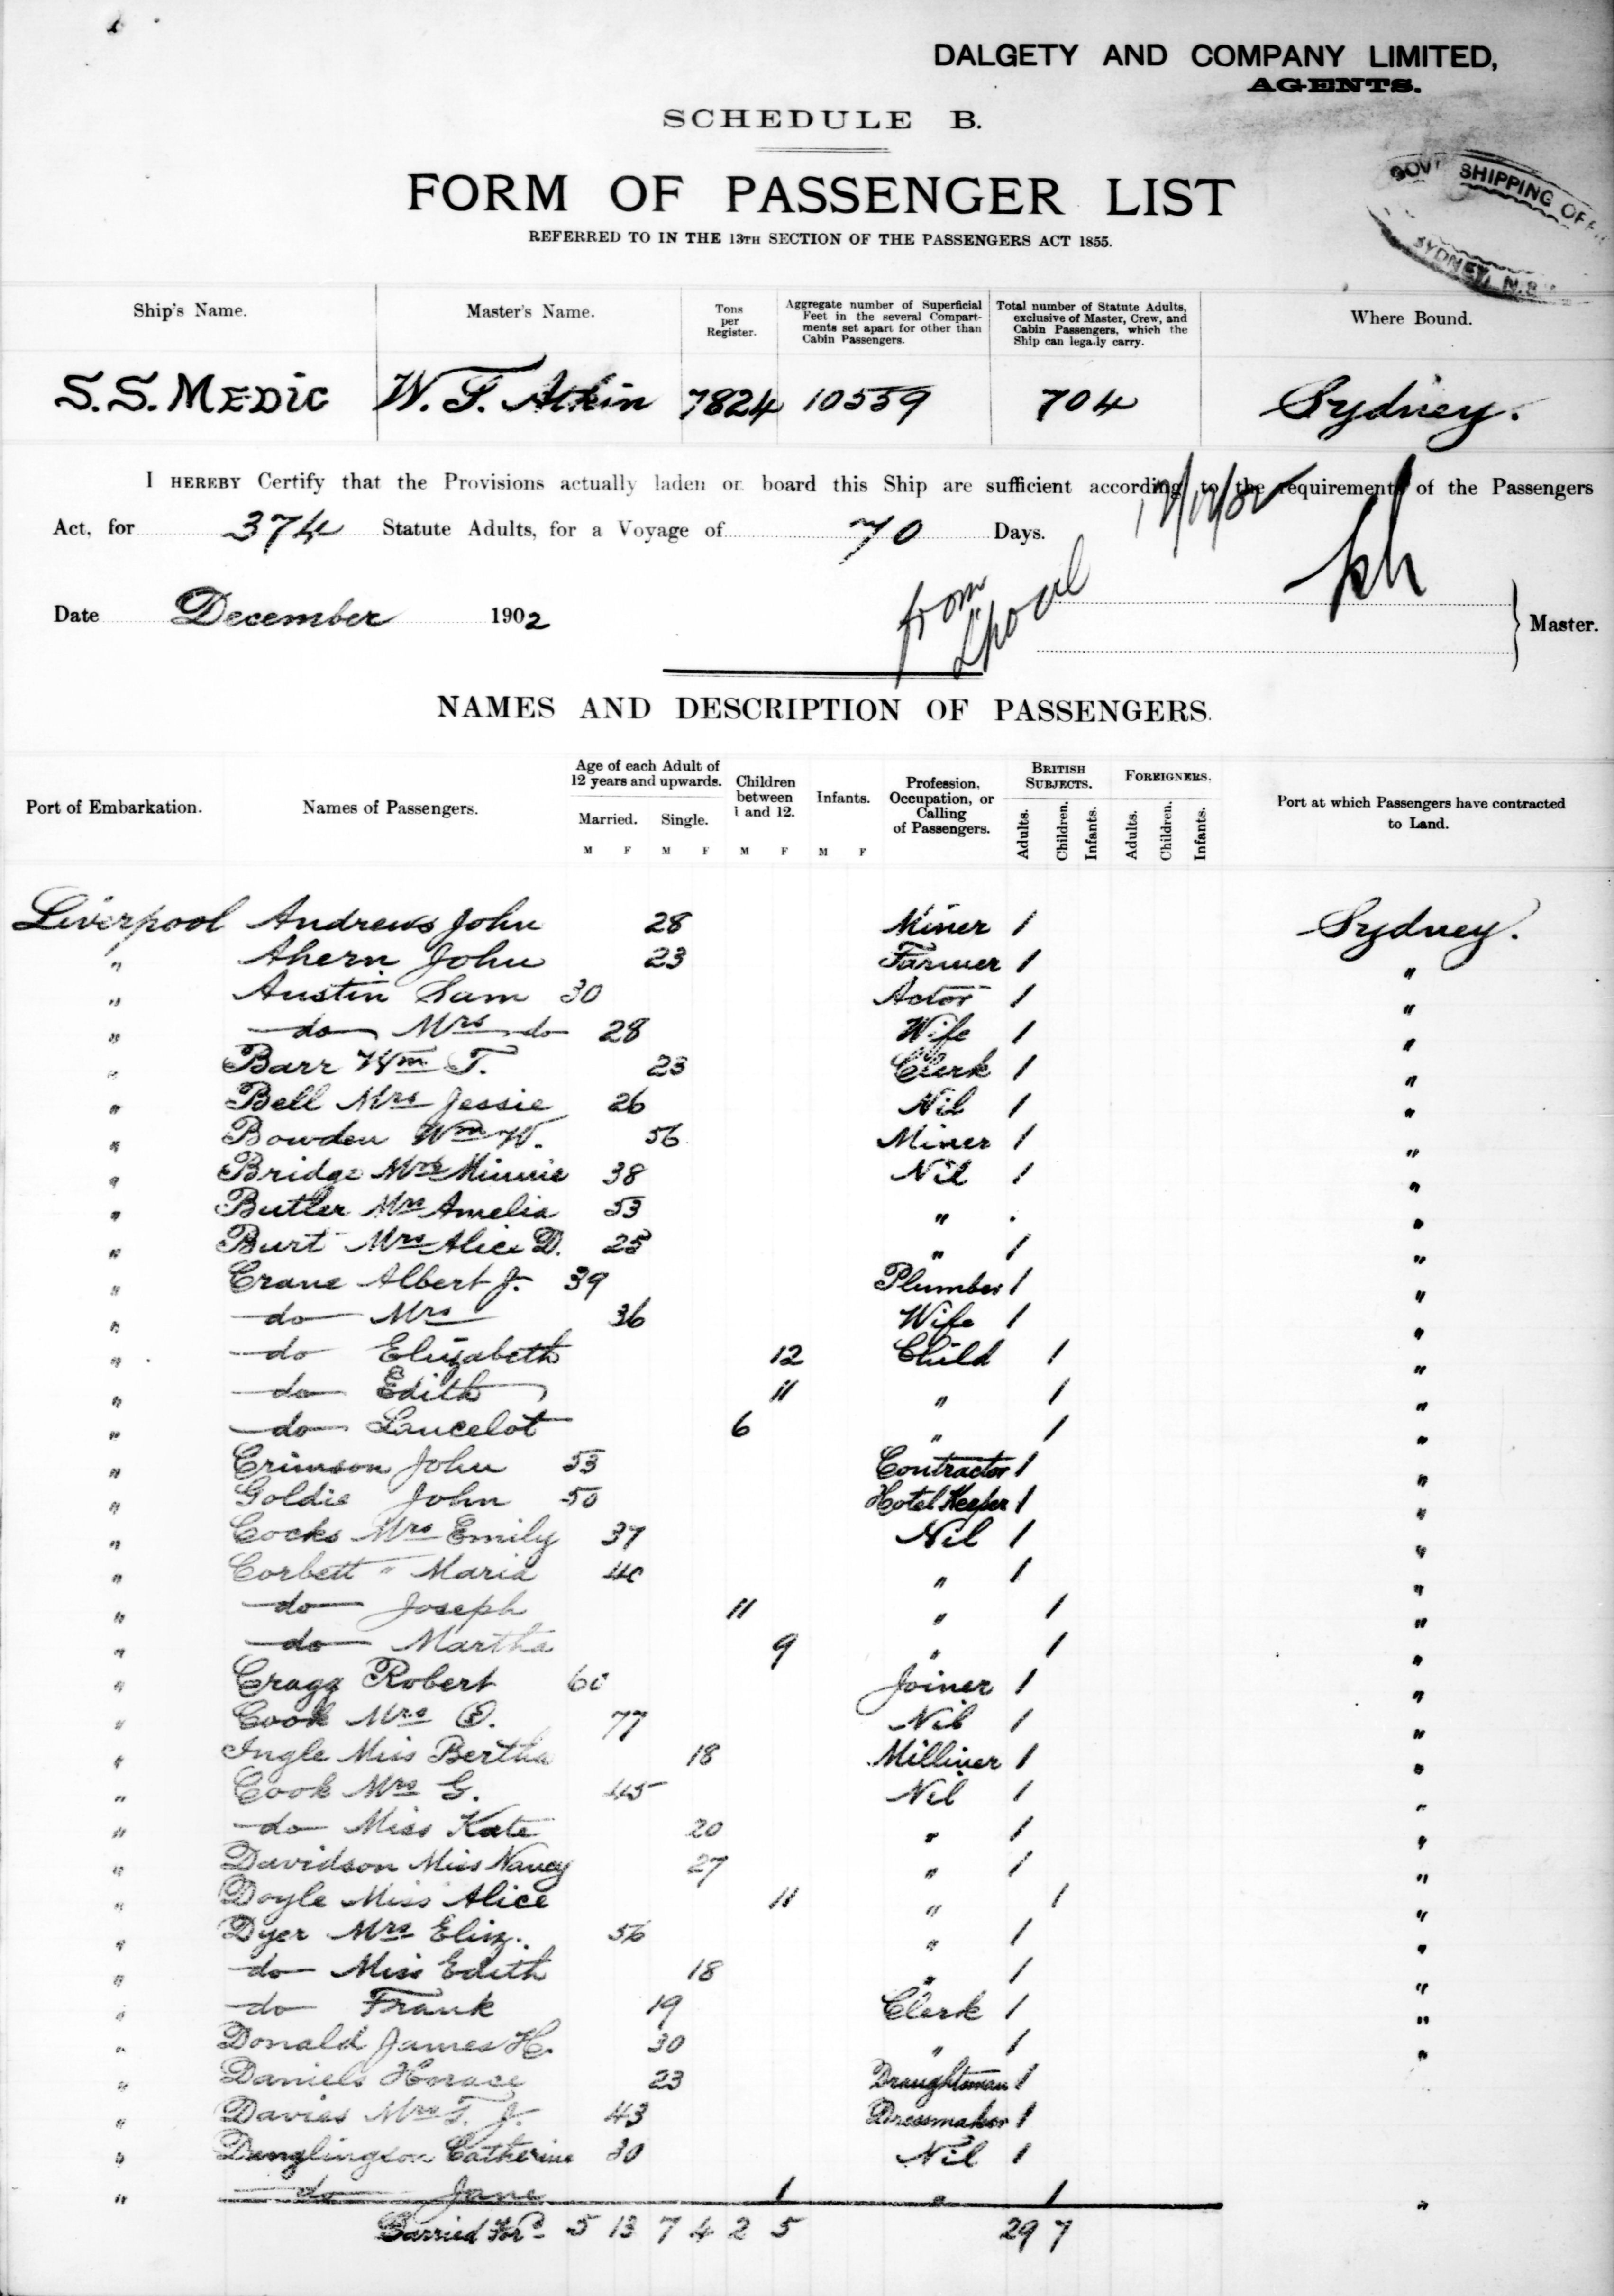 DALGETY AND COMPANY LIMITED,
AGENTS.
SCHEDULE B.
FORM OF PASSENGER LIST
REFERRED TO IN THE 13TH SECTION OF THE PASSENGERS ACT 1855.
GOVT SHIPPING OFF
SYDNEY, N.S
Ship's Name. Master's Name. Tons per Register. Aggregate number of Superficial Feet in the several Compartments set apart for other than Cabin Passengers. Total number of Statute Adults, exclusive of Master, Crew, and Cabin Passengers, which the Ship can legally carry. Where Bound.
S.S. MEDIC W. F. Atkin 7824 10559 704 Sydney.
I HEREBY Certify that the Provisions actually laden on board this Ship are sufficient according to the requirements of the Passengers
Act, for 374 Statute Adults, for a Voyage of 70 Days.
from
L'pool
Date December 1902
Master.
NAMES AND DESCRIPTION OF PASSENGERS.
Port of Embarkation. Names of Passengers. Age of each Adult of 12 years and upwards. Children between 1 and 12. Infants. Profession, Occupation, or Calling of Passengers. BRITISH SUBJECTS. FOREIGNERS. Port at which Passengers have contracted to Land.
Married. Single.
M F M F M F M F Adults. Children. Infants. Adults. Children. Infants.
Liverpool Andrews John 28 Miner 1 Sydney.
" Ahern John 23 Farmer 1 "
" Austin Sam 30 Actor 1 "
" do Mrs do 28 Wife 1 "
" Barr Wm T. 23 Clerk 1 "
" Bell Mrs Jessie 26 Nil 1 "
" Bowden Wm W. 56 Miner 1 "
" Bridge Mrs Minnie 38 Nil 1 "
" Butler Mrs Amelia 53 " "
" Burt Mrs Alice D. 25 " 1 "
" Crane Albert J. 39 Plumber 1 "
" do Mrs 36 Wife 1 "
" do Elizabeth 12 Child 1 "
" do Edith 11 " 1 "
" do Lancelot 6 " 1 "
" Crimson John 53 Contractor 1 "
" Goldie John 50 Hotel Keeper 1 "
" Cocks Mrs Emily 37 Nil 1 "
" Corbett " Maria 40 " 1 "
" do Joseph 11 " 1 "
" do Martha 9 " 1 "
" Cragg Robert 60 Joiner 1 "
" Cook Mrs 77 Nil 1 "
" Ingle Miss Bertha 18 Milliner 1 "
" Cook Mrs G. 45 Nil 1 "
" do Miss Kate 20 " 1 "
" Davidson Miss Nancy 27 " 1 "
" Doyle Miss Alice 11 " 1 "
" Dyer Mrs Eliz. 56 " 1 "
" do Miss Edith 18 " 1 "
" do Frank 19 Clerk 1 "
" Donald James H. 30 " 1 "
" Daniels Horace 23 Draughtsman 1
" Davies Mrs T. J. 43 Dressmaker 1
" Catherine 30 Nil 1
" do Jane 1 " 1 "
Carried Ford 5 13 7 4 2 5 29 7